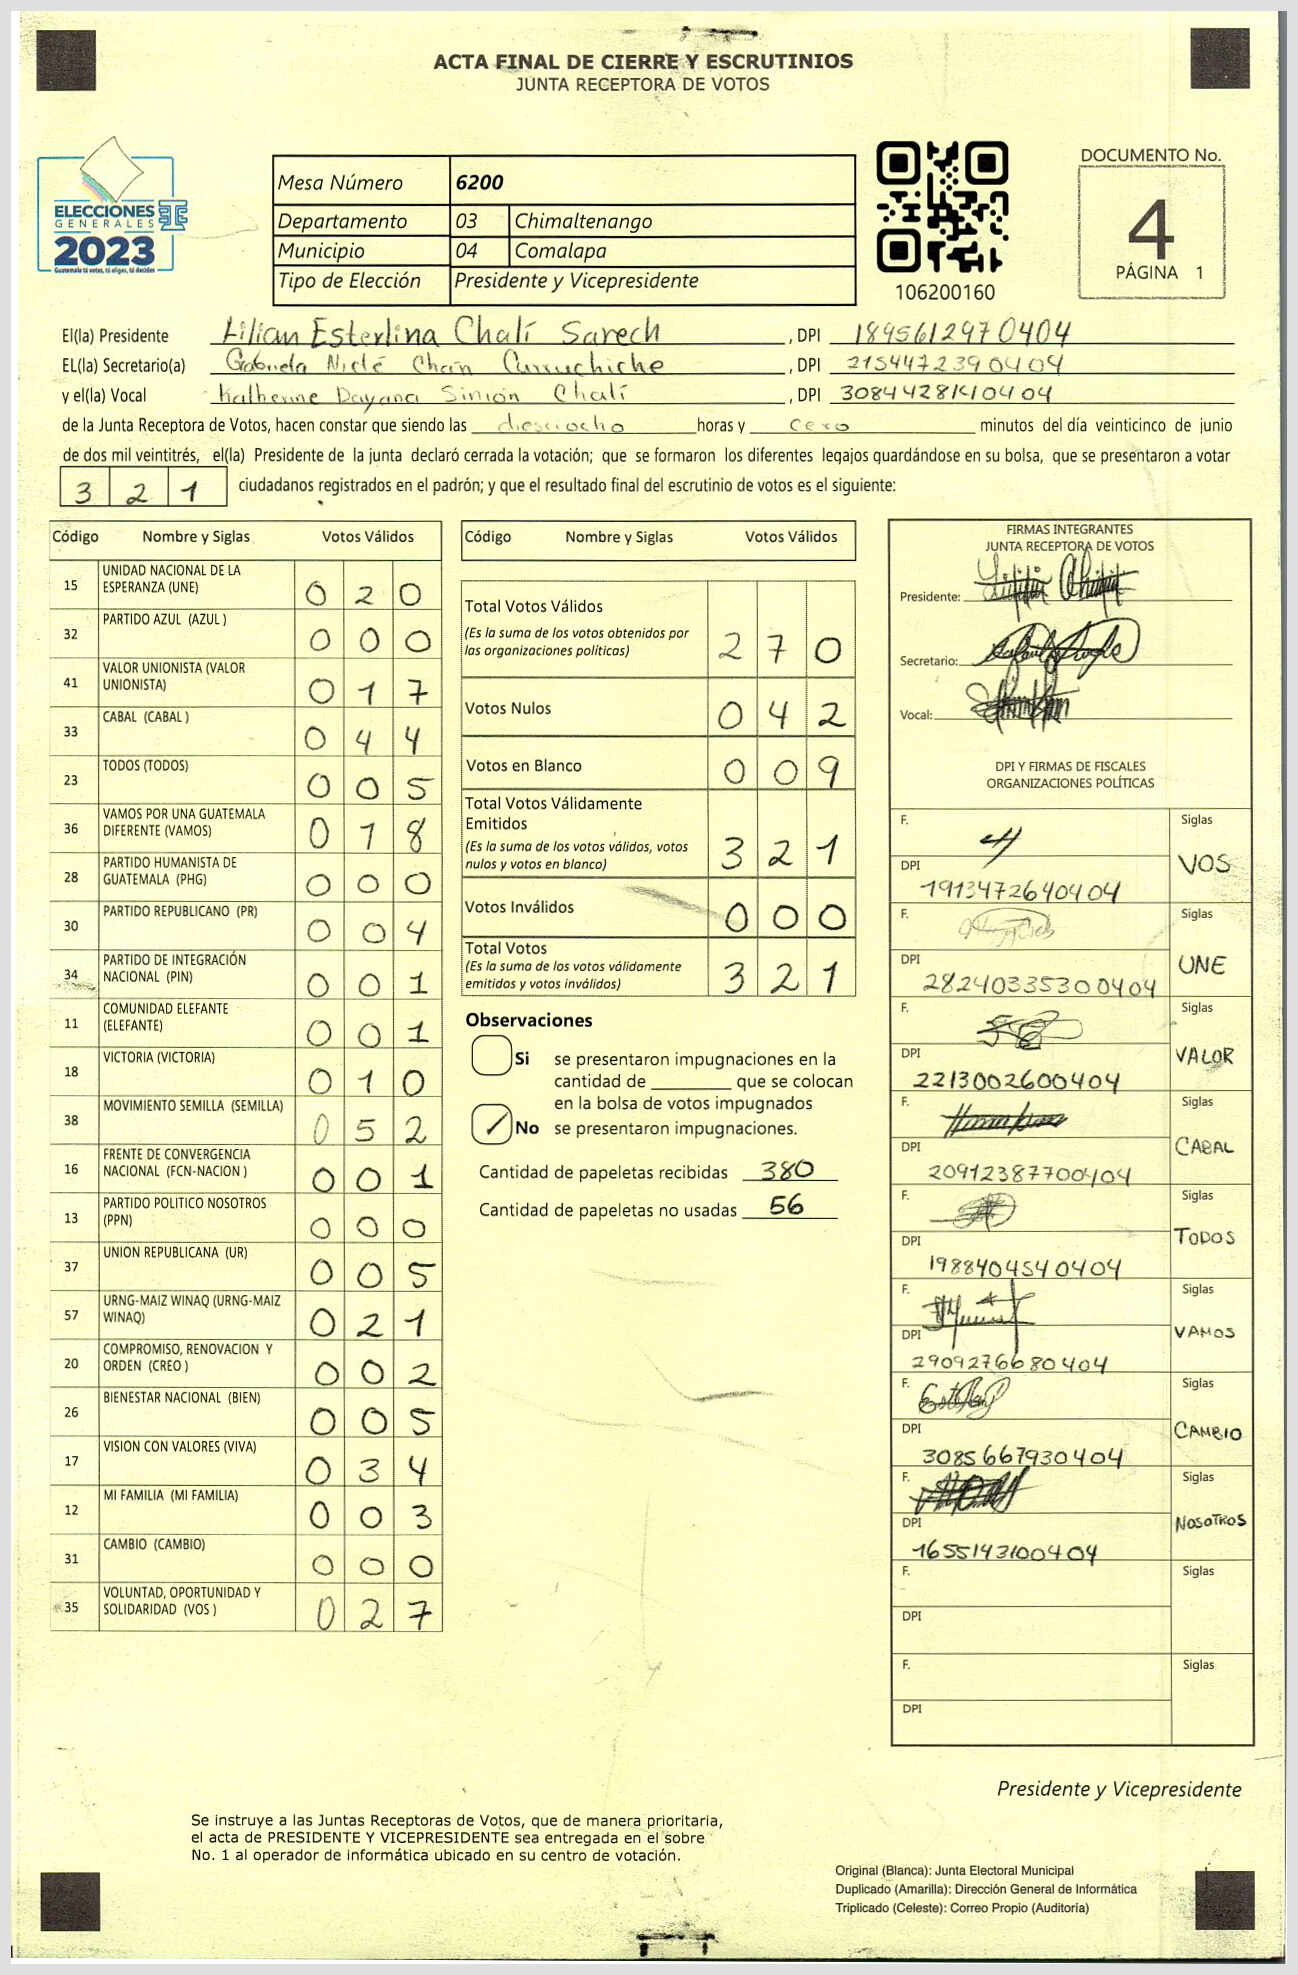 ACTA FINAL DE CIERRE Y ESCRUTINIOS
JUNTA RECEPTORA DE VOTOS
ELECCIONES
GENERALES
2023
Guatemala tú votas, tú eliges, tú decides
Mesa Número 6200
Departamento 03 Chimaltenango
Municipio 04 Comalapa
Tipo de Elección Presidente y Vicepresidente
106200160
DOCUMENTO No.
4
PÁGINA 1
El(la) Presidente Lilian Esterlina Chalí Sarech, DPI 1895612970404
EL(la) Secretario(a) Gabriela Chan, DPI 2154472390404
y el(la) Vocal Katherine Dayana Simón Chalí, DPI 3084428140404
de la Junta Receptora de Votos, hacen constar que siendo las dieciocho horas y cero minutos del día veinticinco de junio
de dos mil veintitrés, el(la) Presidente de la junta declaró cerrada la votación; que se formaron los diferentes legajos guardándose en su bolsa, que se presentaron a votar
3 2 1 ciudadanos registrados en el padrón; y que el resultado final del escrutinio de votos es el siguiente:
Código Nombre y Siglas Votos Válidos
15 UNIDAD NACIONAL DE LA ESPERANZA (UNE) 0 2 0
32 PARTIDO AZUL (AZUL ) 0 0 0
41 VALOR UNIONISTA (VALOR UNIONISTA) 0 1 7
33 CABAL (CABAL ) 0 4 4
23 TODOS (TODOS) 0 0 5
36 VAMOS POR UNA GUATEMALA DIFERENTE (VAMOS) 0 1 8
28 PARTIDO HUMANISTA DE GUATEMALA (PHG) 0 0 0
30 PARTIDO REPUBLICANO (PR) 0 0 4
34 PARTIDO DE INTEGRACIÓN NACIONAL (PIN) 0 0 1
11 COMUNIDAD ELEFANTE (ELEFANTE) 0 0 1
18 VICTORIA (VICTORIA) 0 1 0
38 MOVIMIENTO SEMILLA (SEMILLA) 0 5 2
16 FRENTE DE CONVERGENCIA NACIONAL (FCN-NACION ) 0 0 1
13 PARTIDO POLITICO NOSOTROS (PPN) 0 0 0
37 UNION REPUBLICANA (UR) 0 0 5
57 URNG-MAIZ WINAQ (URNG-MAIZ WINAQ) 0 2 1
20 COMPROMISO, RENOVACION Y ORDEN (CREO ) 0 0 2
26 BIENESTAR NACIONAL (BIEN) 0 0 5
17 VISION CON VALORES (VIVA) 0 3 4
12 MI FAMILIA (MI FAMILIA) 0 0 3
31 CAMBIO (CAMBIO) 0 0 0
35 VOLUNTAD, OPORTUNIDAD Y SOLIDARIDAD (VOS ) 0 2 7
Código Nombre y Siglas Votos Válidos
Total Votos Válidos
(Es la suma de los votos obtenidos por las organizaciones políticas) 2 7 0
Votos Nulos 0 4 2
Votos en Blanco 0 0 9
Total Votos Válidamente Emitidos
(Es la suma de los votos válidos, votos nulos y votos en blanco) 3 2 1
Votos Inválidos 0 0 0
Total Votos
(Es la suma de los votos válidamente emitidos y votos inválidos) 3 2 1
Observaciones
Si se presentaron impugnaciones en la
cantidad de ________ que se colocan
en la bolsa de votos impugnados
No se presentaron impugnaciones.
Cantidad de papeletas recibidas 380
Cantidad de papeletas no usadas 56
FIRMAS INTEGRANTES
JUNTA RECEPTORA DE VOTOS
Presidente:
Secretario:
Vocal:
DPI Y FIRMAS DE FISCALES
ORGANIZACIONES POLÍTICAS
F. Siglas
VOS
DPI
1913472640404
F. Siglas
UNE
DPI
2824033530404
F. Siglas
VALOR
DPI
2213002600404
F. Siglas
CABAL
DPI
2091238770404
F. Siglas
TODOS
DPI
1988404540404
F. Siglas
VAMOS
DPI
2909276680404
F. Siglas
CAMBIO
DPI
3085667930404
F. Siglas
NOSOTROS
DPI
1655143100404
F. Siglas
DPI
F. Siglas
DPI
Presidente y Vicepresidente
Se instruye a las Juntas Receptoras de Votos, que de manera prioritaria,
el acta de PRESIDENTE Y VICEPRESIDENTE sea entregada en el sobre
No. 1 al operador de informática ubicado en su centro de votación.
Original (Blanca): Junta Electoral Municipal
Duplicado (Amarilla): Dirección General de Informática
Triplicado (Celeste): Correo Propio (Auditoría)